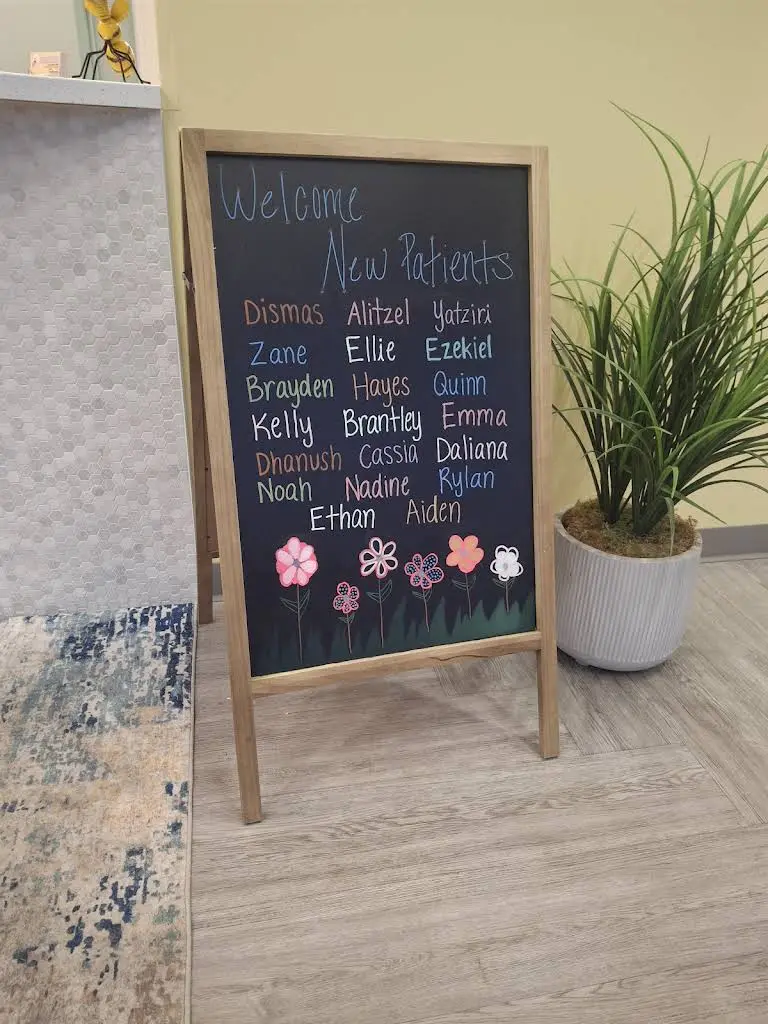 Welcome
New Patients
Dismas Alitzel Yatziri
Zane Ellie Ezekiel
Brayden Hayes Quinn
Kelly Brantley Emma
Dhanush Cassia Daliana
Noah Nadine Rylan
Ethan Aiden